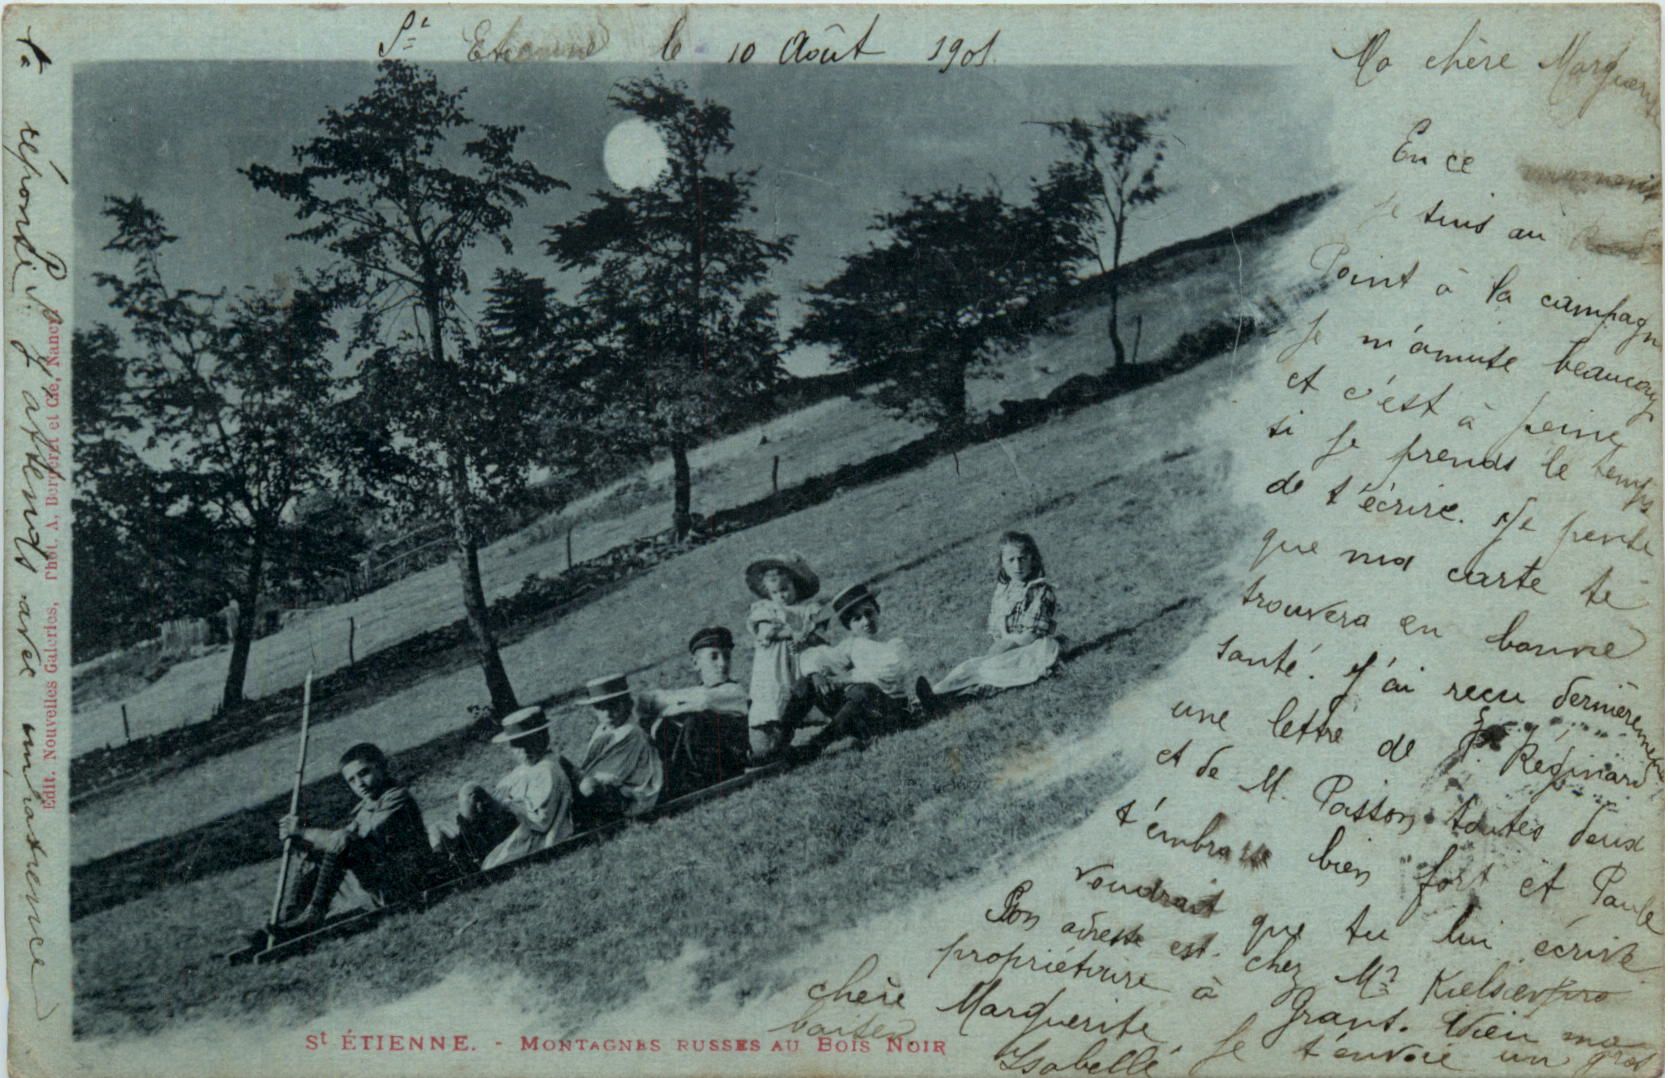 St Etienne le 10 Août 1901.
Ma chère Marguerite
En ce moment
je suis au
Point à la campagne
je m'amuse beaucoup
et c'est à peine
si je prends le temps
de t'écrire. Je pense
que ma carte te
trouvera en bonne
santé. J'ai reçu dernièrement
une lettre de
et de M. toutes deux
t'embrasse bien fort et Paule
voudrait que tu lui écrive
Son adresse est. chez Mr
propriétaire à Grant. Vien ma
chère Marguerite je t'envoie un gros
baiser. Isabelle
P. S. J'attends avec impatience
ta réponse
Edit. Nouvelles Galeries, Phot. A, Bergeret et Cie, Nancy
St ÉTIENNE. - MONTAGNES RUSSES AU BOIS NOIR